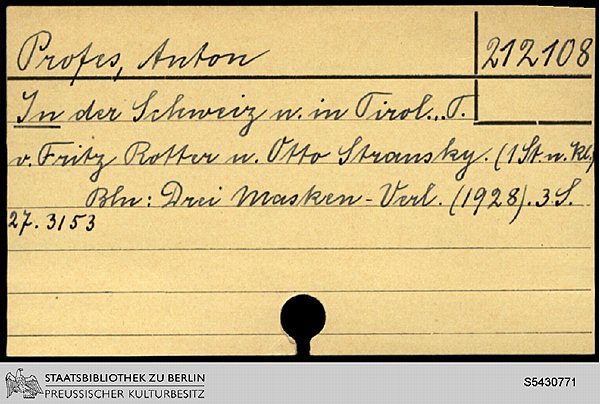 Profes, Anton
212108
In der Schweiz u. in Tirol... T.
v. Fritz Rotter u. Otto Stransky. (1 St. u. Kl.)
Bln: Drei Masken-Verl. (1928). 3 S.
27. 3153
STAATSBIBLIOTHEK ZU BERLIN
PREUSSISCHER KULTURBESITZ
S5430771